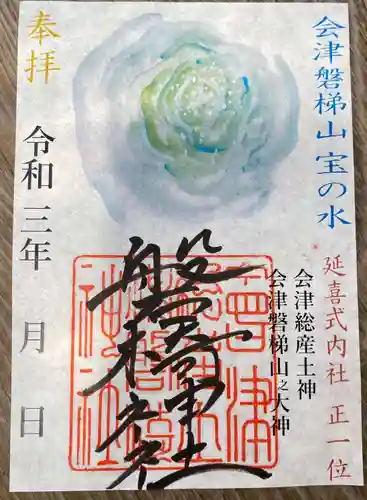 会津磐梯山 宝の水
延喜式内社 正一位
会津総産土神
会津磐梯山之大神
奉拝
令和三年 月 日
磐椅神社